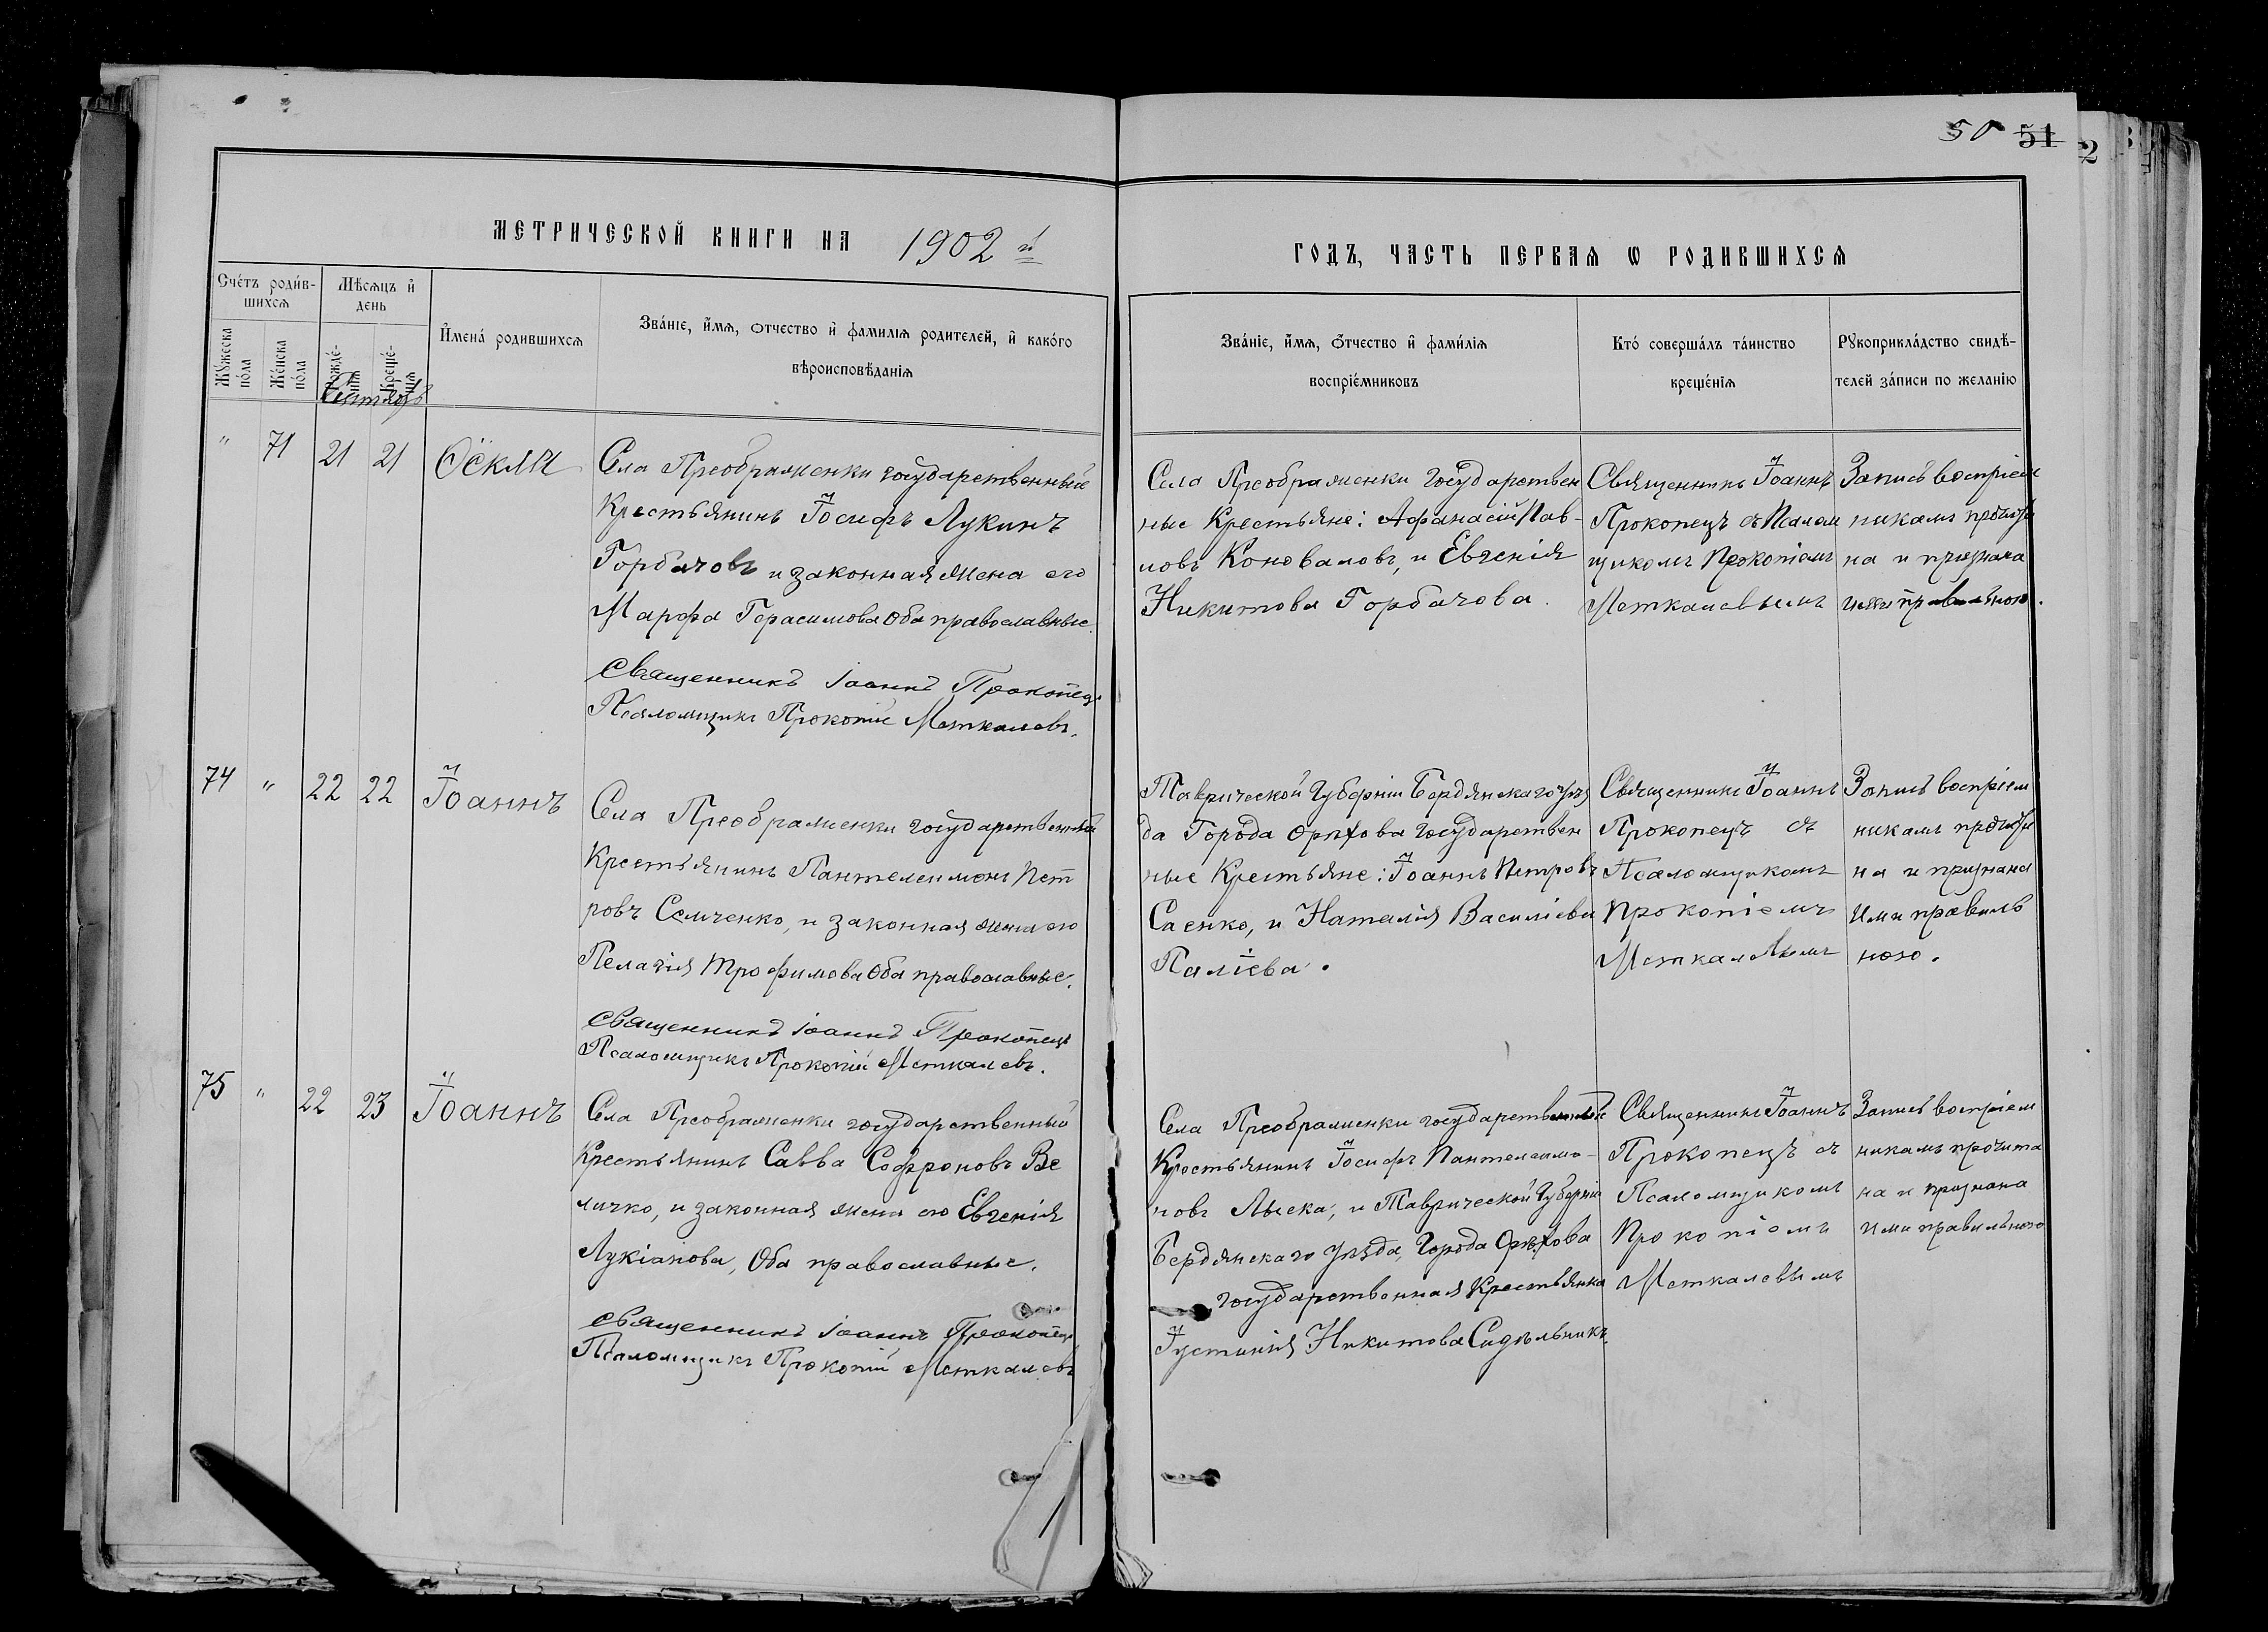 50 51
2
МЕТРИЧЕСКОЙ КНИГИ НА 1902 й
ГОДЪ, ЧАСТЬ ПЕРВАЯ Ѡ РОДИВШИХСЯ
Сче́тъ роди́вшихсѧ
Мѣсѧцъ и҆ день
И҆мена́ родившихсѧ
Зва́нїе, и҆́мѧ, ѻтчество и҆ фамилїѧ родителей, и҆ како́го
вѣроисповѣ́данїѧ
Мꙋ́жеска по́ла
Же́нска по́ла
рожде́нїѧ
Креще́нїѧ
Сентябрь
Зва́нїе, и҆́мѧ, ѻ҆́тчество и҆ фами́лїѧ
воспрїе́мниковъ
Кто́ соверша́лъ та́инство
креще́нїѧ
Рꙋкоприкла́дство свидѣ́-
телей за́писи по жела́нїю
" 71 21 21 Ѳекла
Села Преображенки государственный
Крестьянинъ Іосифъ Лукинъ
Горбачовъ и законная жена его
Марфа Герасимова Оба православные.
Священникъ Іоаннъ Прокопецъ
Псаломщикъ Прокопій Меткалевъ.
Села Преображенки Государствен
ные Крестьяне: Афанасій Пав-
ловъ Коноваловъ, и Евгенія
Никитова Горбачова.
Священникъ Іоаннъ
Прокопецъ съ Псалом
щикомъ Прокопіемъ
Меткалевымъ
Запись воспріем
никамъ прочита
на и признана
ими правильною.
74 " 22 22 Іоаннъ
Села Преображенки государственный
Крестьянинъ Пантелеимонъ Пет
ровъ Семченко, и законная жена его
Пелагія Трофимова Оба православные.
Священникъ Іоаннъ Прокопецъ
Псаломщикъ Прокопій Меткалевъ.
Таврической Губерніи Бердянскаго уѣз
да Города Орѣхова Государствен
ные Крестьяне: Іоаннъ Петровъ
Саенко, и Наталія Василіева
Паліева.
Священникъ Іоаннъ
Прокопецъ съ
Псаломщикомъ
Прокопіемъ
Меткалевымъ
Запись воспріем
никамъ прочита
на и признана
Ими правиль
ною.
75 " 22 23 Іоаннъ
Села Преображенки государственный
Крестьянинъ Савва Софроновъ Ве
личко, и законная жена его Евгенія
Лукіанова, Оба православные.
Священникъ Іоаннъ Прокопецъ
Псаломщикъ Прокопій Меткалевъ
Села Преображенки государственный
Крестьянинъ Іосифъ Пантелеимо-
новъ Лыска, и Таврической Губерніи
Бердянскаго уѣзда, Города Орѣхова
государственная Крестьянка
Іустинія Никитова Сидѣльникъ.
Священникъ Іоаннъ
Прокопецъ съ
Псаломщикомъ
Прокопіемъ
Меткалевымъ
Запись воспріем
никамъ прочита
на и признана
ими правильною